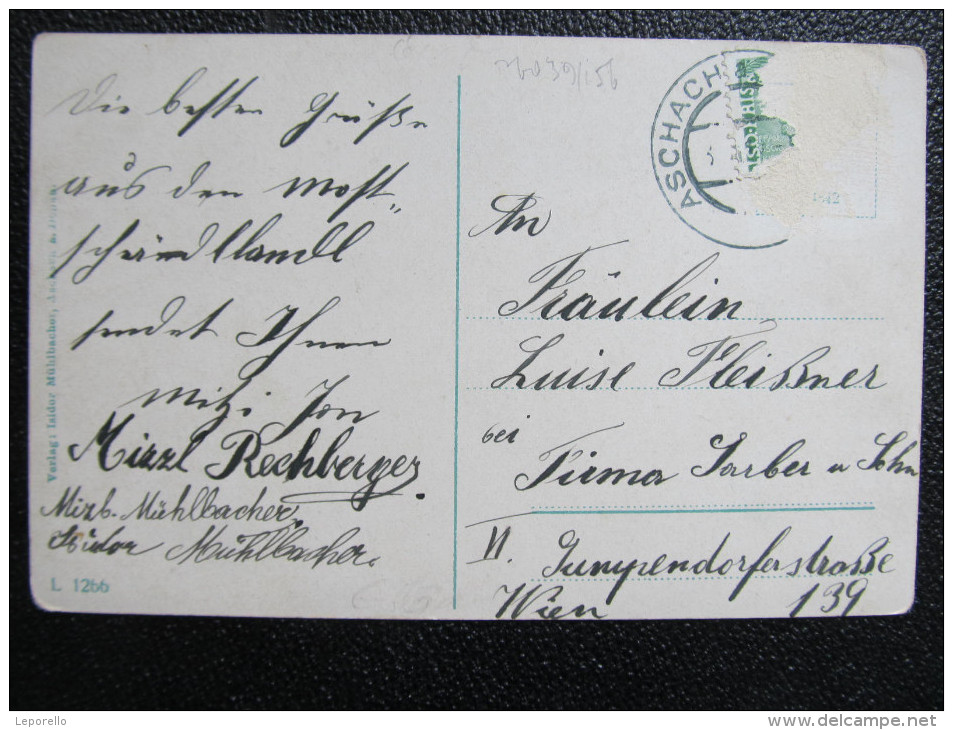 Die besten Grüße
aus den Most-
schädllandl
sendet Ihnen
Mitzi
Mizzl Rechberger
Mizb. Mühlbacher
Isidor Mühlbacher
Verlag: Isidor Mühlbacher, Aschach a. Donau
L 1266
ASCHACH
ÖSTERREICH
An
Fräulein
Luise Fleißner
bei
Firma Sarber u Sohn
VI. Gumpendorferstraße
Wien 139
Leporello
www.delcampe.net